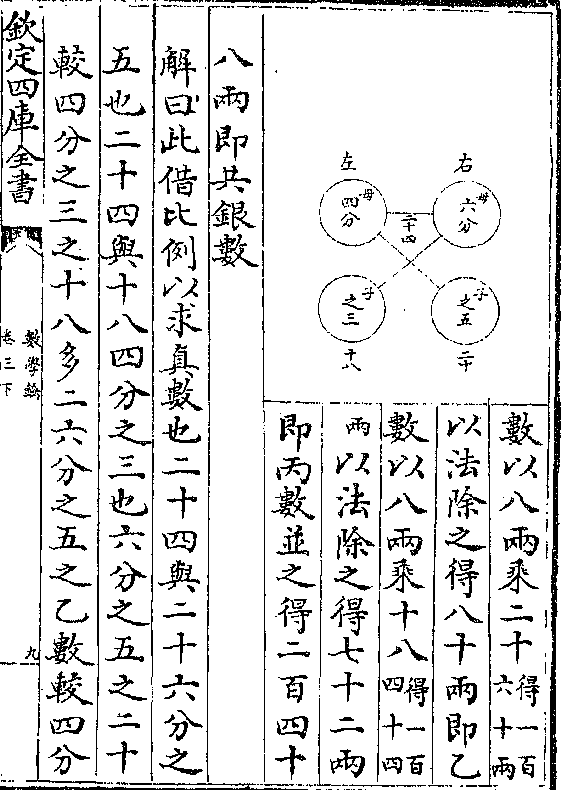 右
左
母
六分
母
四分
二十四
子
之五
子
之三
二十
十八
數以八兩乗二十得一百六十兩
以法除之得八十兩即乙
數以八兩乗十八得一百四十四
兩以法除之得七十二兩
即丙數並之得二百四十
八兩即共銀數
解曰此借比例以求真數也二十四與二十六分之
五也二十四與十八四分之三也六分之五之二十
較四分之三之十八多二六分之五之乙數較四分
欽定四庫全書
數學鑰
卷三下
九